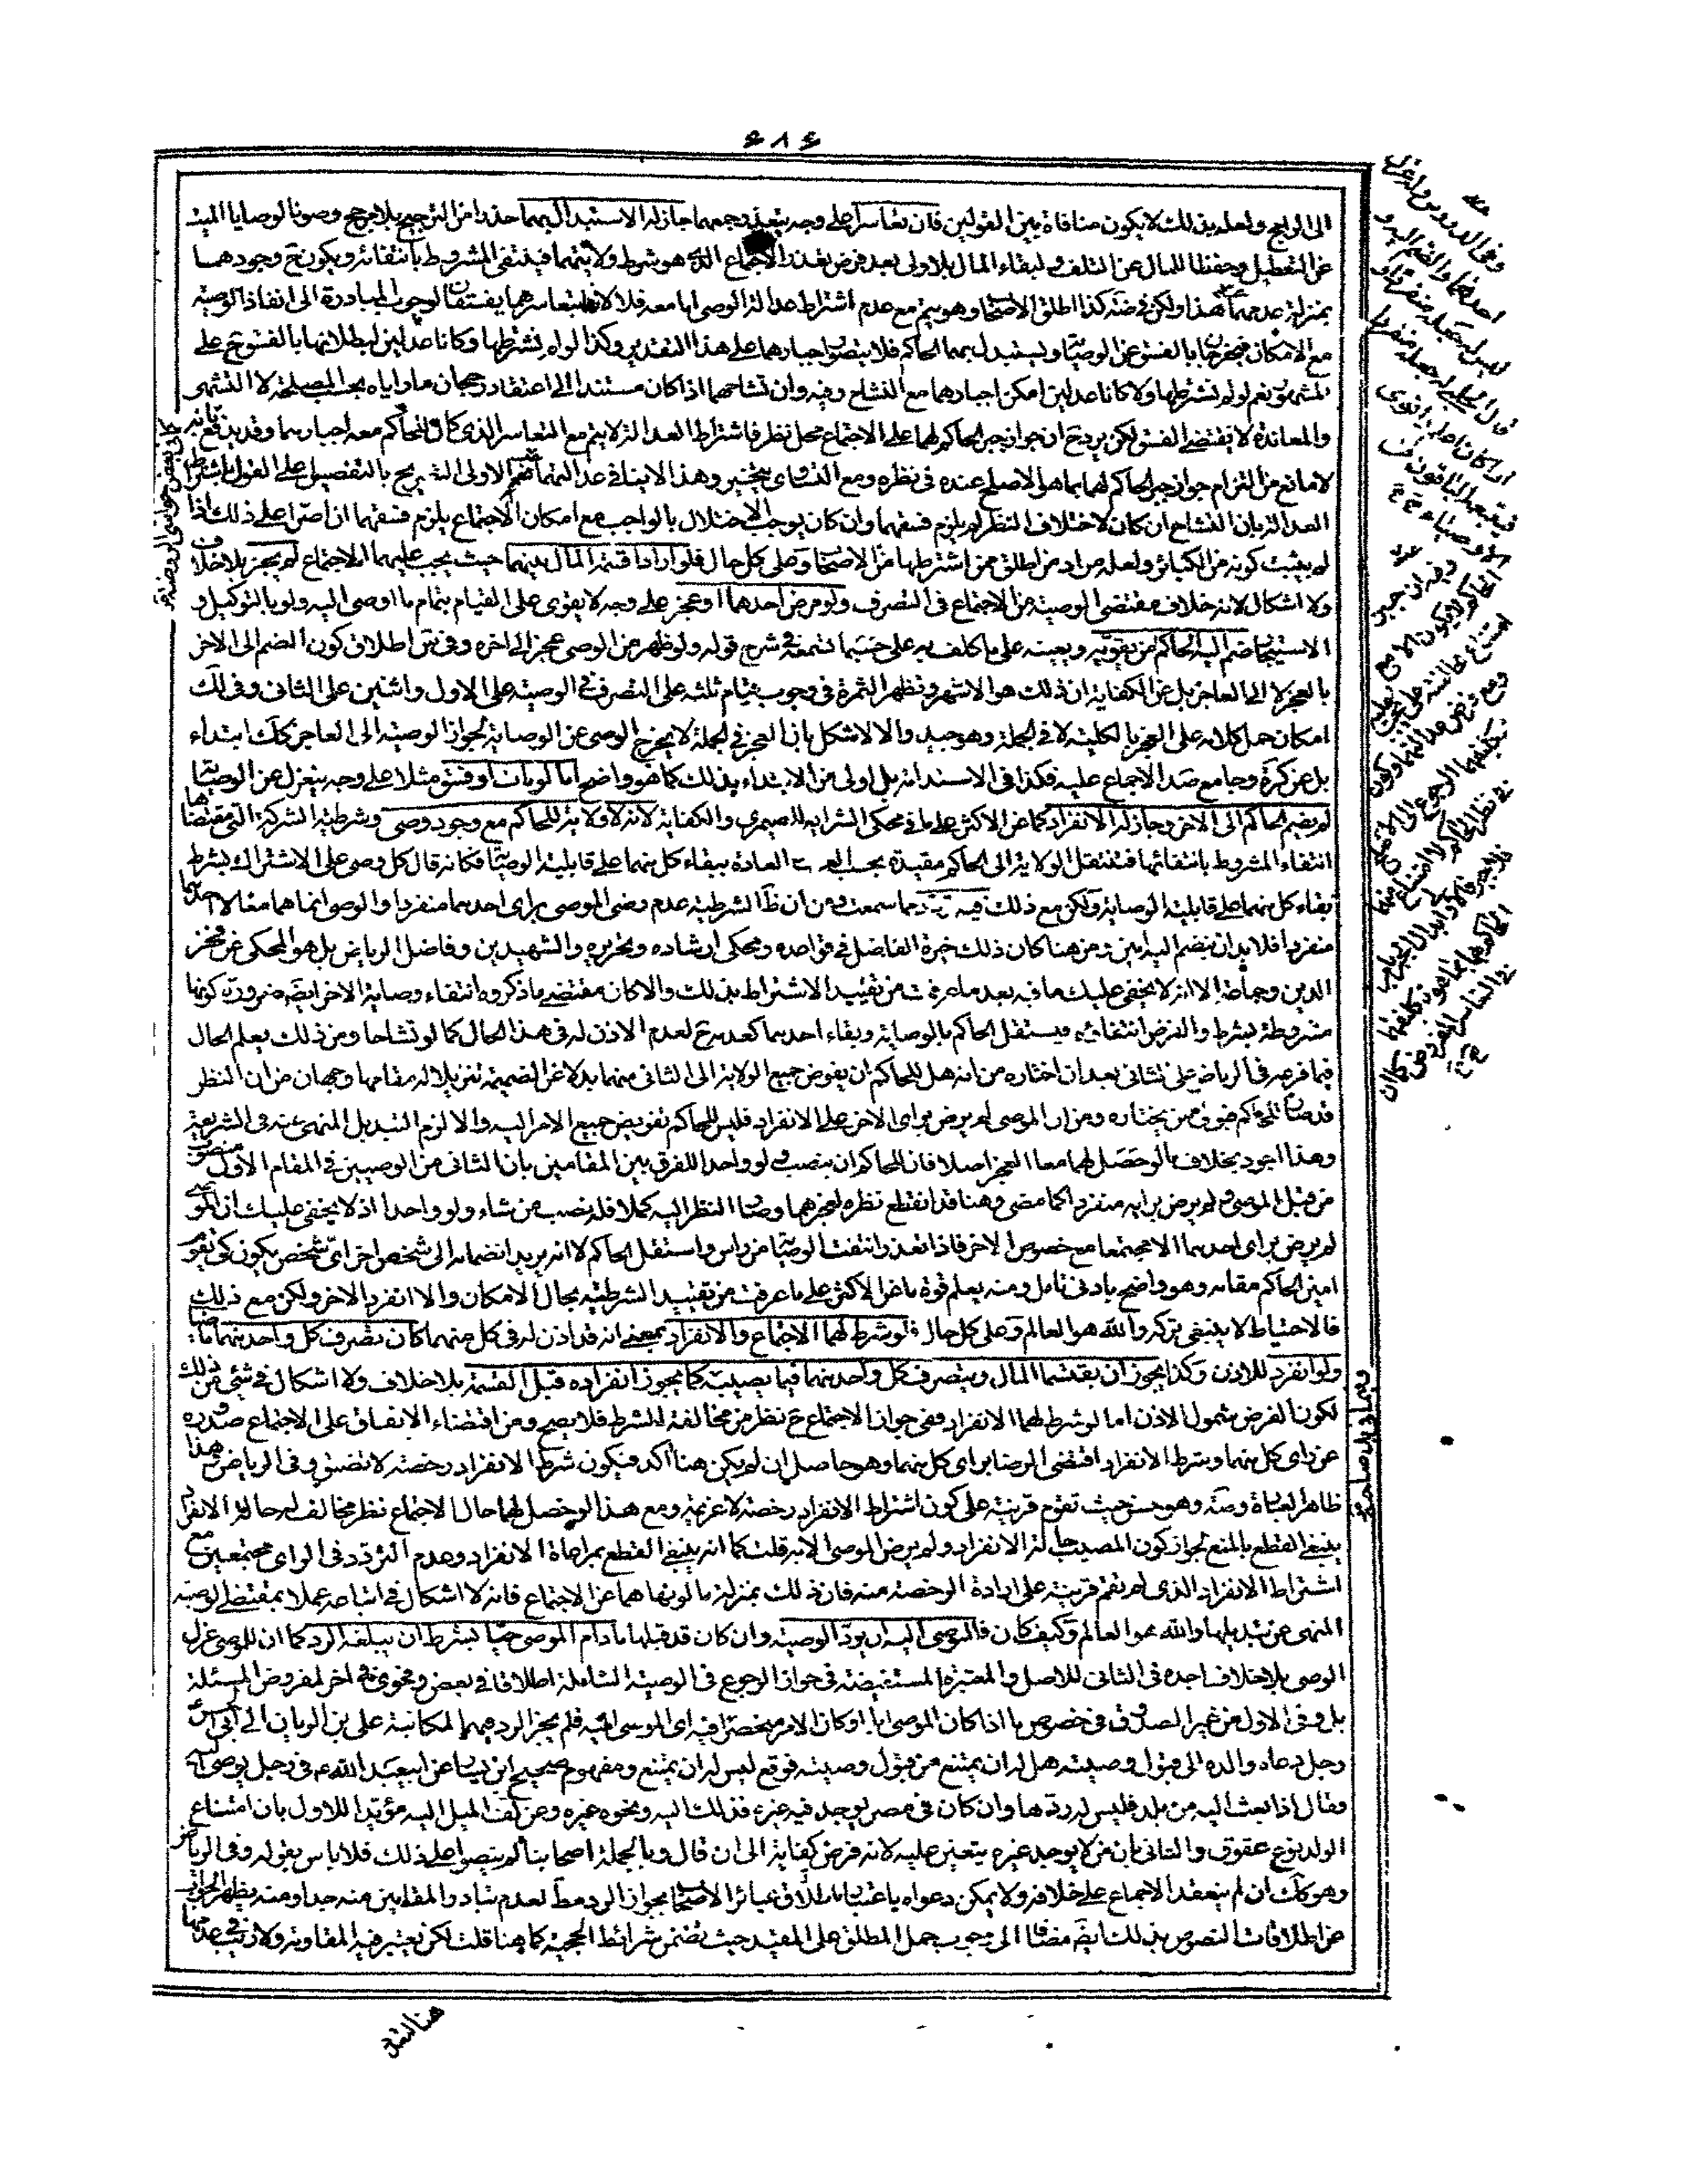 ٤٨٤
الى الراجح ولعله بذلك لا يكون منافاة بين القولين فان تعاسرا على وجه يتعذر جمعهما جاز له الاستبدال بهما حذرا من الترجيح بلا مرجح وصونا لوصايا الميت
عن التعطيل وحفظا للمال عن التلف ولبقاء المال بلا ولى بعد فرض تعذر الاجتماع الذي هو شرط ولايتهما فينتفى المشروط بانتفائه ويكون ح وجودهما
بمنزلة عدمهما هذا ولكن في ضه كذا اطلق الاصحاب وهو يتم مع عدم اشتراط عدالة الوصى اما معه فلا لانهما بتعاسرهما يفسقان لوجوب المبادرة الى انفاذ الوصية
مع الامكان فيخرجان بالفسق عن الوصاية ويستبدل بهما الحاكم فلا يتصور اجبارهما على هذا التقدير وكذا لو لم نشترطها وكانا عدلين لبطلانها بالفسق ح على
المشهور نعم لو لم نشترطها ولا كانا عدلين امكن اجبارهما مع التشاح وفيه وان تشاحهما اذا كان مستندا الى اعتقاد رجحان ما راياه بحسب المصلحة لا التشهى
والمعاندة لا يقتضى الفسق لكن يرد ح ان جواز جبر الحاكم لهما على الاجتماع محل نظر فاشتراط العدالة لا يتم مع التعاسر الذى كان للحاكم معه اجبارهما وقد يدفع بانه
لا مانع من التزام جواز جبر الحاكم لهما بما هو الاصلح عنده في نظره ومع التساوى يتخير وهذا لا ينافى عدالتهما نعم الاولى التشريح بالتفصيل على القول باشتراط
العدالة بان التشاح ان كان لاختلاف النظر لم يلزم فسقهما وان كان يوجب الاختلال بالواجب مع امكان الاجتماع يلزم فسقهما ان اصرا على ذلك اذا
لم يثبت كونه من الكبائر ولعله مراد من اطلق ممن اشترطها من الاصحاب وعلى كل حال فلو ارادا قسمة المال بينهما حيث يجب عليهما الاجتماع لم يجز بلا خلاف
ولا اشكال لانه خلاف مقتضى الوصية من الاجتماع فى التصرف ولو مرض احدهما او عجز على وجه لا يقوى على القيام بتمام ما اوصى اليه ولو بالتوكيل و
الاستيجار ضم اليه الحاكم من يقويه ويعينه على ما كلف به على حسبما تسمعه في شرح قوله ولو ظهر من الوصى عجز الى اخره وفى س اطلاق كون الضم الى الاخر
بالعجز لا الى العاجز بل عن الكفاية ان ذلك هو الاشهر وتظهر الثمرة فى وجوب قيام ثلثه على التصرف في الوصية على الاول واثنين على الثانى وفى لك
امكان حمل كلامه على العجز بالكلية لا فى الجملة وهو جيد والا لاشكل بان العجز في الجملة لا يخرج الوصى عن الوصاية لجواز الوصية الى العاجز كك ابتداء
بل عن كرة وجامع صد الاجماع عليه فكذا فى الاستدامة بل اولى من الابتداء بذلك كما هو واضح اما لو مات او فسق مثلا على وجه ينعزل عن الوصاية
لم يضم الحاكم الى الاخر وجاز له الانفراد كما عن الاكثر على ما فى محكى السرائر للصيمرى والكفاية لانه لا ولاية للحاكم مع وجود وصى وشرطية الشركة التى مقتضاها
انتفاء المشروط بانتفائها فتنتقل الولاية الى الحاكم مقيدة بحسب العادة ببقاء كل منهما على قابلية الوصاية فكانه قال كل وصى على الاشتراك بشرط
بقاء كل منهما على قابلية الوصاية ولكن مع ذلك فيه تردد مما سمعت ومن ان ظ الشرطية عدم رضى الموصى براى احدهما منفردا والوصى انما هما معا لا احدهما
منفردا فلا بد ان يضم اليه امين ومن هنا كان ذلك خيرة الفاضل في قواعده ومحكى ارشاده وتحريره والشهيدين وفاضل الرياض بل هو المحكى عن فخر
الدين وجماعة الا انه لا يخفى عليك ما فيه بعد ما عرفت من تقييد الاشتراط بذلك والا كان مقتضى ما ذكروه انتفاء وصاية الاخر ايضا ضرورة كونها
مشروطة بشرط والفرض انتفائه فيستقل الحاكم بالوصاية وبقاء احدهما كعدمه ح لعدم الاذن له فى هذا الحال كما لو تشاحا ومن ذلك يعلم الحال
فيما فرعه فى الرياض على الثانى بعد ان اختاره من انه هل للحاكم ان يفوض جميع الولاية الى الثانى منهما بدلا عن الضميمة تنزيلا له مقامها وجهان من ان النظر
قد صار للحاكم فيوفى ممن يختاره ومن ان الموصى لم يرض براى الاخر على الانفراد فليس للحاكم تفويض جميع الامر اليه والا لزم التبديل المنهى عنه فى الشريعة
وهذا اجود بخلاف ما لو حصل لهما معا العجز اصلا فان للحاكم ان ينصب ولو واحدا للفرق بين المقامين بان الثانى من الوصيين في المقام الاول منصوب
من قبل الموصى ولم يرض برايه منفردا كما مضى وهنا قد انقطع نظره لعجزهما وصار النظر اليه كملا فله نصب من شاء ولو واحدا اذ لا يخفى عليك ان الموصى
لم يرض براى احدهما الا مجتمعا مع خصوص الاخر فاذا تعذر انتفت الوصاية من راس واستقل الحاكم لا انه يريد انضمامه الى شخص اخر اى شخص يكون كى يقوم
امين الحاكم مقامه وهو واضح بادنى تامل ومنه يعلم قوة ما عن الاكثر على ما عرفت من تقييد الشرطية بحال الامكان والا انفرد الاخر ولكن مع ذلك
فالاحتياط لا ينبغى تركه والله هو العالم وعلى كل حال فلو شرط لهما الاجتماع والانفراد بمعنى انه قد اذن له فى كل منهما كان تصرف كل واحد منهما ماضيا
ولو انفرد للاذن وكذا يجوز ان يقتسما المال ويتصرف كل واحد منهما فيما يصيبه كما يجوز انفراده قبل القسمة بلا خلاف ولا اشكال في شئ من ذلك
لكون الفرض شمول الاذن اما لو شرط لهما الانفراد ففى جواز الاجتماع ح نظر من مخالفته للشرط فلا يصح ومن اقتضاء الاتفاق على الاجتماع صدوره
عن راى كل منهما وشرط الانفراد اقتضى الرضا براى كل منهما وهو حاصل ان لم يكن هنا اكد فيكون شرط الانفراد رخصة لا تضييق وفى الرياض هذا
ظاهر العبارة وضه وهو حسن حيث تقوم قرينة على كون اشتراط الانفراد رخصة لا عزيمة ومع هذا لو حصل لهما حال الاجتماع نظر مخالف له حالة الانفراد
ينبغى القطع بالمنع لجواز كون المصيب حالة الانفراد ولم يرض الموصى الا به قلت كما انه ينبغى القطع بمراعاة الانفراد وعدم التردد فى الراى مجتمعين مع
اشتراط الانفراد الذى لم تقم قرينة على ارادة الرخصة منه فان ذلك بمنزلة ما لو نهاهما عن الاجتماع فانه لا اشكال في اتباعه عملا بمقتضى الوصية
المنهى عن تبديلها والله هو العالم وكيف كان فللموصى اليه ان يرد الوصية وان كان قد قبلها ما دام الموصى حيا بشرط ان يبلغه الرد كما ان للموصى عزل
الوصى بلا خلاف اجده فى الثانى للاصل والمعتبرة المستفيضة فى جواز الرجوع فى الوصية الشاملة اطلاقا في بعض وفحوى في اخر لمفروض المسئلة
بل وفى الاول عن غير الصدوق فى خصوص ما اذا كان الموصى ابا او كان الامر منحصرا فيه اى الموسى اليه فلم يجز الرد فيهما لمكاتبة على بن الريان الى ابى الحسن
رجل دعاه والده الى قبول وصيته هل له ان يمتنع من قبول وصيته فوقع ليس له ان يمتنع ومفهوم صحيح ابن يسار عن ابيعبد الله ع فى رجل يوصى اليه
وقال اذا بعث اليه من بلد فليس له ردها وان كان فى مصر يوجد فيه غيره فذلك اليه ونحوه غيره وعن لف الميل اليه مؤيدا للاول بان امتناع
الولد نوع عقوق والثانى بان من لا يوجد غيره يتعين عليه لانه فرض كفاية الى ان قال وبالجملة اصحابنا لم ينصوا على ذلك فلا باس بقوله وفى الرياض
وهو كك ان لم ينعقد الاجماع على خلافه ولا يمكن دعواه باعتبار اطلاق عبائر الاصحاب بجواز الرد مط لعدم تبادر المقامين منه جدا ومنه يظهر الجواب
عن اطلاقات النصوص بذلك ايضا مضافا الى وجوب حمل المطلق على المقيد حيث تضمن شرائط الحجية كما هنا قلت لكن يعتبر فيه المقاومة ولا ريب في عدمها
هنا